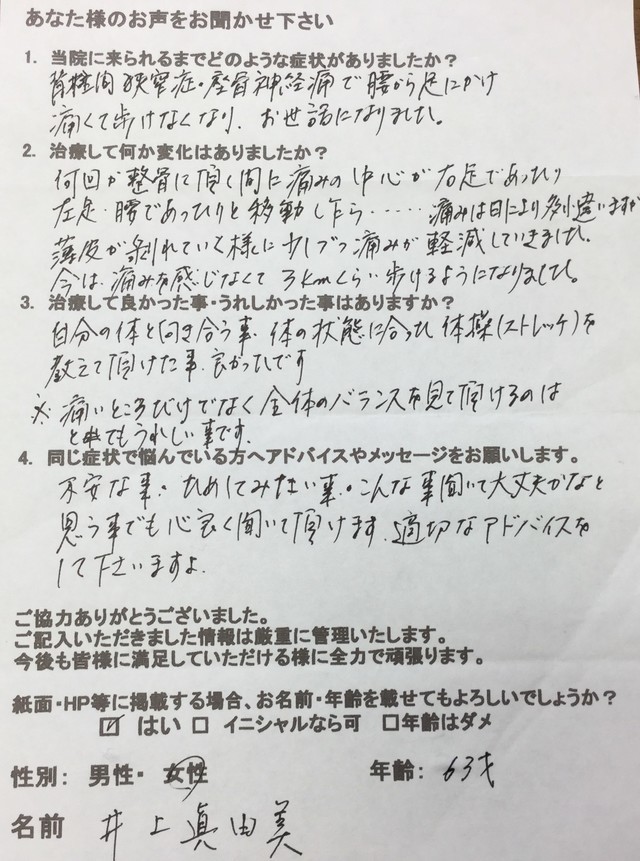 あなた様のお声をお聞かせ下さい
1. 当院に来られるまでどのような症状がありましたか?
脊柱間狭窄症・坐骨神経痛で腰から足にかけ
痛くて歩けなくなり、お世話になりました。
2. 治療して何か変化はありましたか?
何回か整骨に頂く間に痛みの中心が右足であったり
左足・腰であったりと移動したら……痛みは日により多少違いますが
薄皮が剥れていく様に少しづつ痛みが軽減していきました。
今は、痛みを感じなくて3kmくらい歩けるようになりました。
3. 治療して良かった事・うれしかった事はありますか?
自分の体と向き合う事、体の状態に合った体操(ストレッチ)を
教えて頂けた事、良かったです
※ 痛いところだけでなく全体のバランスを見て頂けるのは
とてもうれしい事です。
4. 同じ症状で悩んでいる方へアドバイスやメッセージをお願いします。
不安な事・ためしてみたい事・こんな事聞いて大丈夫かなと
思う事でも心良く聞いて頂けます。適切なアドバイスを
して下さいますよ。
ご協力ありがとうございました。
ご記入いただきました情報は厳重に管理いたします。
今後も皆様に満足していただける様に全力で頑張ります。
紙面・HP等に掲載する場合、お名前・年齢を載せてもよろしいでしょうか?
☑ はい □ イニシャルなら可 □年齢はダメ
性別: 男性・ 女性 年齢: 63才
名前 井上眞由美